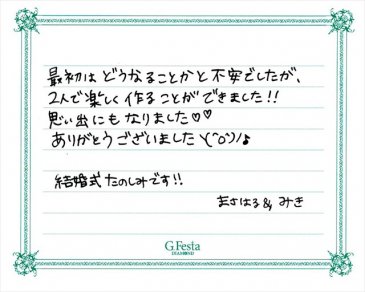 最初は どうなることかと不安でしたが、
2人で楽しく作ることができました!!
思い出にもなりました♡♡
ありがとうございましたヽ(^o^)ノ♪
結婚式たのしみです!!
まさはる& みき
G.Festa
DIAMOND